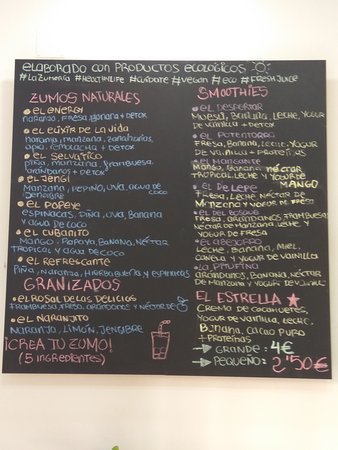 elaborado con productos ecológicos
#LaZumería #HEALTHYLIFE #CUÍDATE #VEGAN #ECO #FRESHJUICE
ZUMOS NATURALES
• EL ENERGY
naranja, FRESA, Banana + DETOX
• EL ELIXIR DE LA VIDA
naranja, manzana, zanahorias,
apio, remolacha + DETOX
• EL SELVÁTICO
piña, manzana, frambuesa,
arándanos + DETOX
• EL JENGI
Manzana, PEPINO, UVA, AGUA DE
JENGIBRE
• EL POPEYE
ESPINACAS, PIÑA, UVA, BANANA
Y AGUA DE COCO
• EL CUBANITO
MANGO, PAPAYA, BANANA, NÉCTAR
TROPICAL Y AGUA DE COCO
• EL REFRESCANTE
PIÑA, NARANJA, HIERBABUENA Y ESPINACAS
GRANIZADOS
• EL ROSAL DE LAS DELICIAS
FRAMBUESA, FRESA, ARÁNDANOS Y NÉCTAR DE
• EL NARANJITO
NARANJA, LIMÓN, JENGIBRE
¡CREA TU ZUMO!
(5 INGREDIENTES)
SMOOTHIES
• EL DESPERTAR
MUESLI, BANANA, LECHE, YOGUR
DE VAINILLA + DETOX
• EL POTENTORRO
FRESA, BANANA, LECHE, YOGUR
DE VAINILLA + PROTEÍNAS
• EL MANGANTE
MANGO, BANANA, NÉCTAR
TROPICAL, LECHE Y YOGUR DE
MANGO
• EL DE LEPE
FRESA, LECHE, NÉCTAR DE
MANZANA Y YOGUR DE FRESA
• EL DEL BOSQUE
FRESA, ARÁNDANOS, FRAMBUESAS,
NÉCTAR DE MANZANA, LECHE
Y YOGUR DE FRESA
LECHE, BANANA, MIEL,
CANELA Y YOGUR DE VAINILLA
• LA PITUFINA
ARÁNDANOS, BANANA, NÉCTAR
DE MANZANA Y YOGUR DE VAINILLA
EL ESTRELLA
CREMA DE CACAHUETES,
YOGUR DE VAINILLA, LECHE,
BANANA, CACAO PURO
+ PROTEÍNAS
→ GRANDE: 4€
→ PEQUEÑO: 2'50€